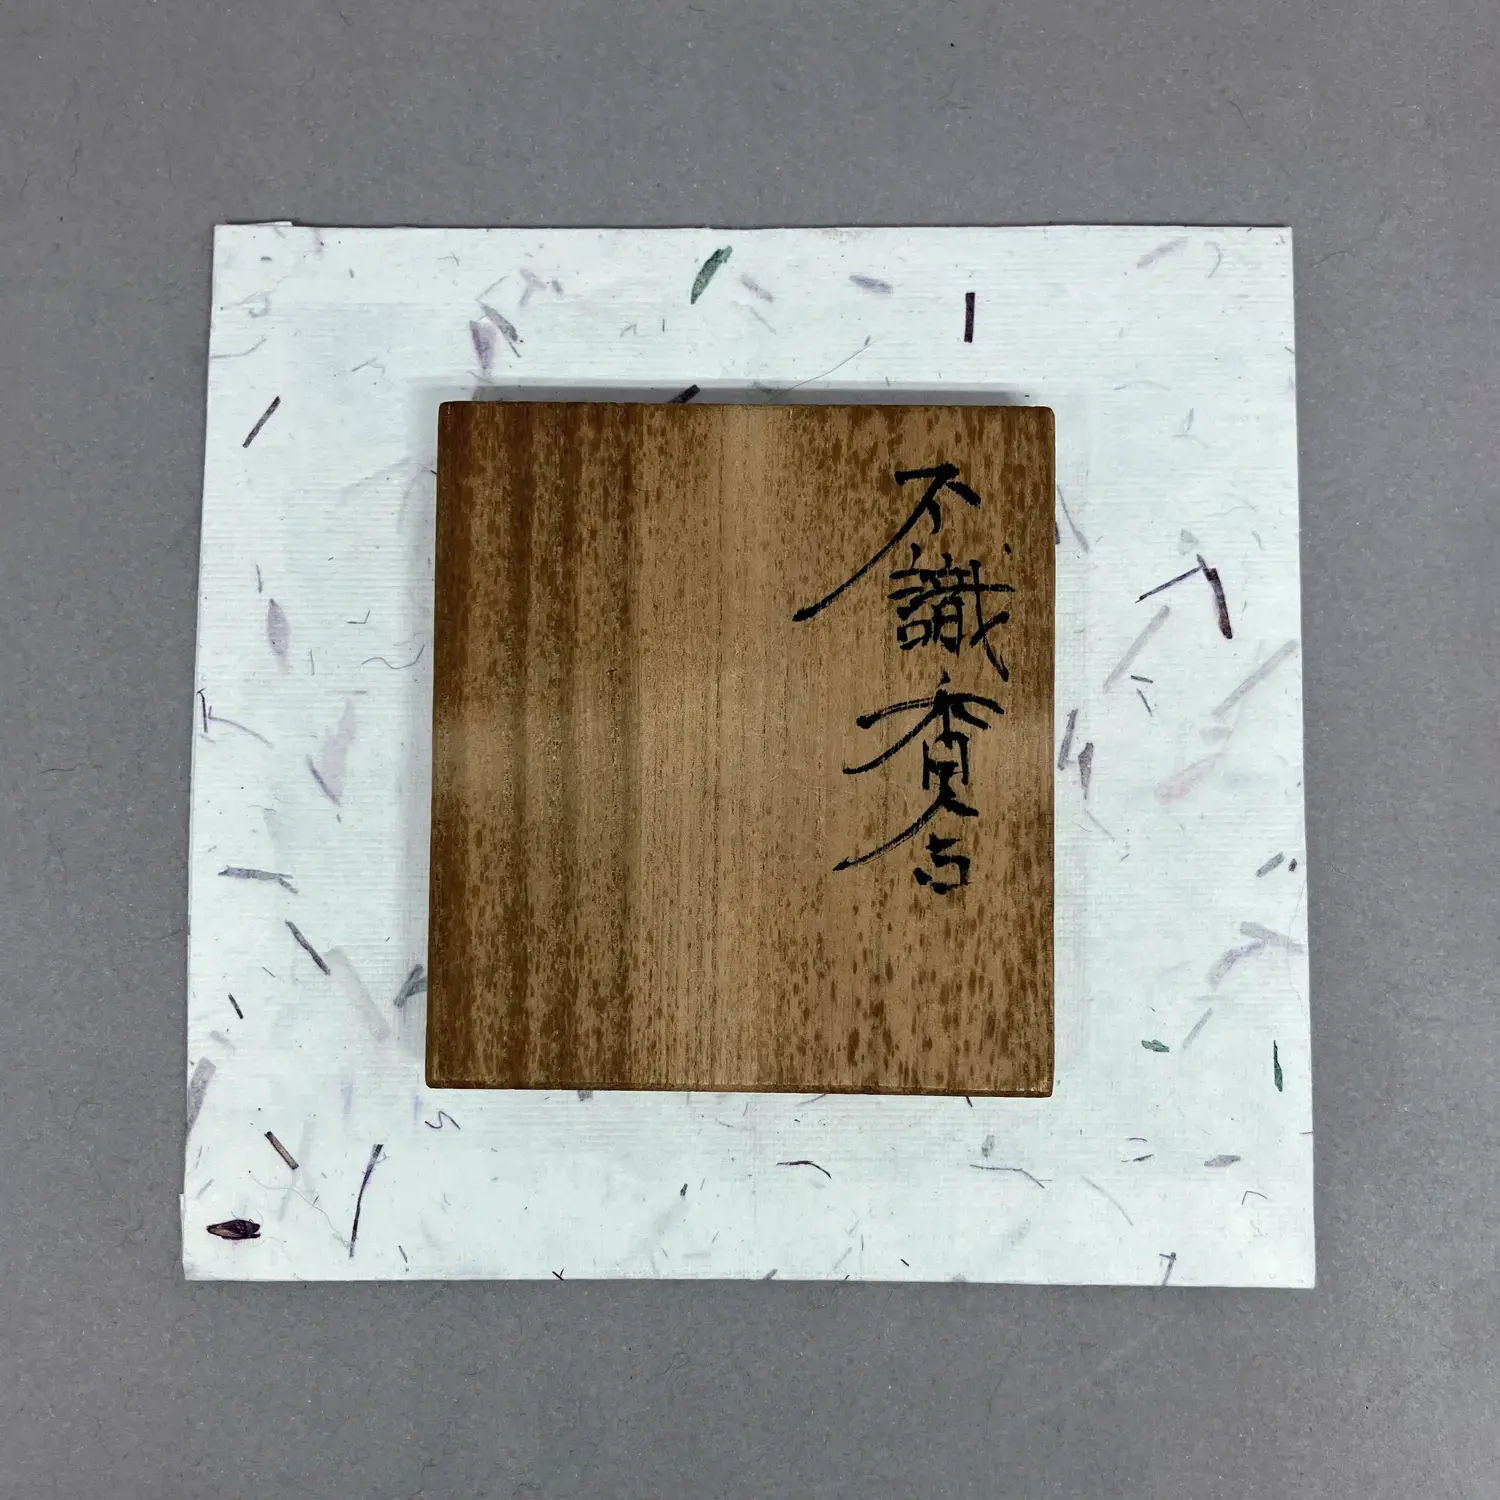 不識香合